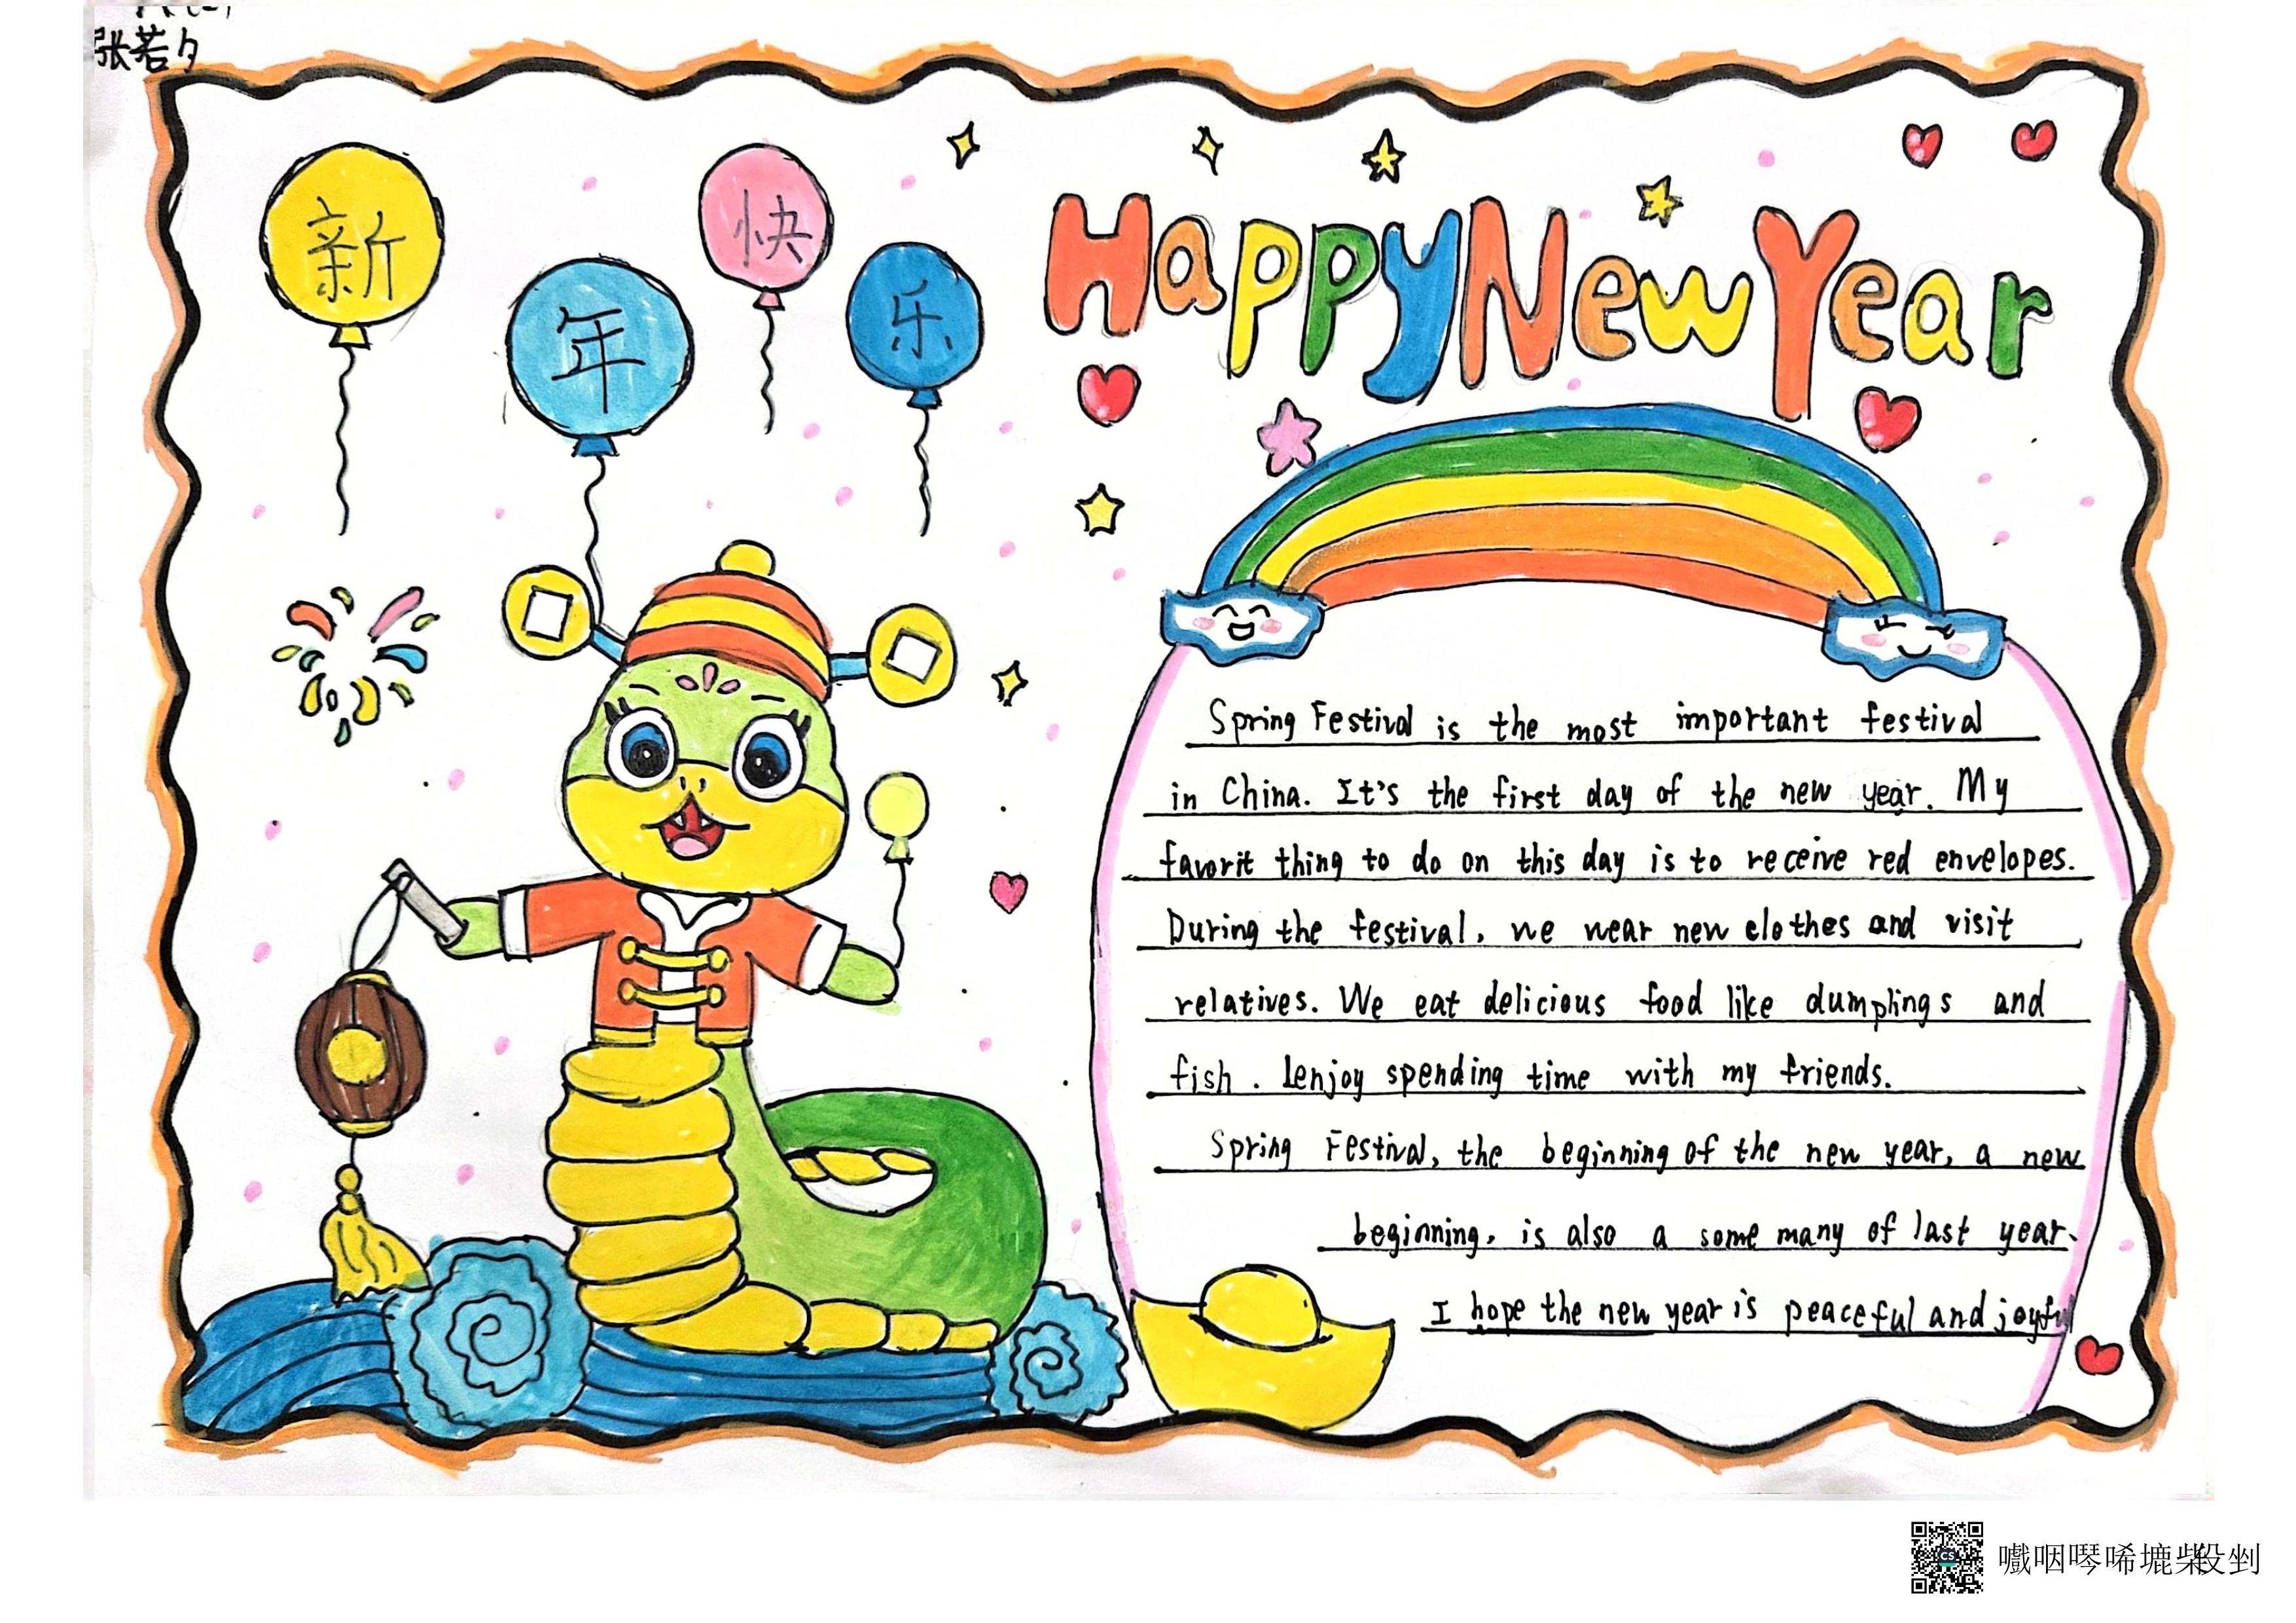 张若夕
新年快乐
Happy New Year
Spring Festival is the most important festival
in China. It's the first day of the new year. My
favorit thing to do on this day is to receive red envelopes.
During the festival, we wear new clothes and visit
relatives. We eat delicious food like dumplings and
fish. I enjoy spending time with my friends.
Spring Festival, the beginning of the new year, a new
beginning, is also a some many of last year.
I hope the new year is peaceful and joyful
CS
嚱咽噿唏摝柴役剉